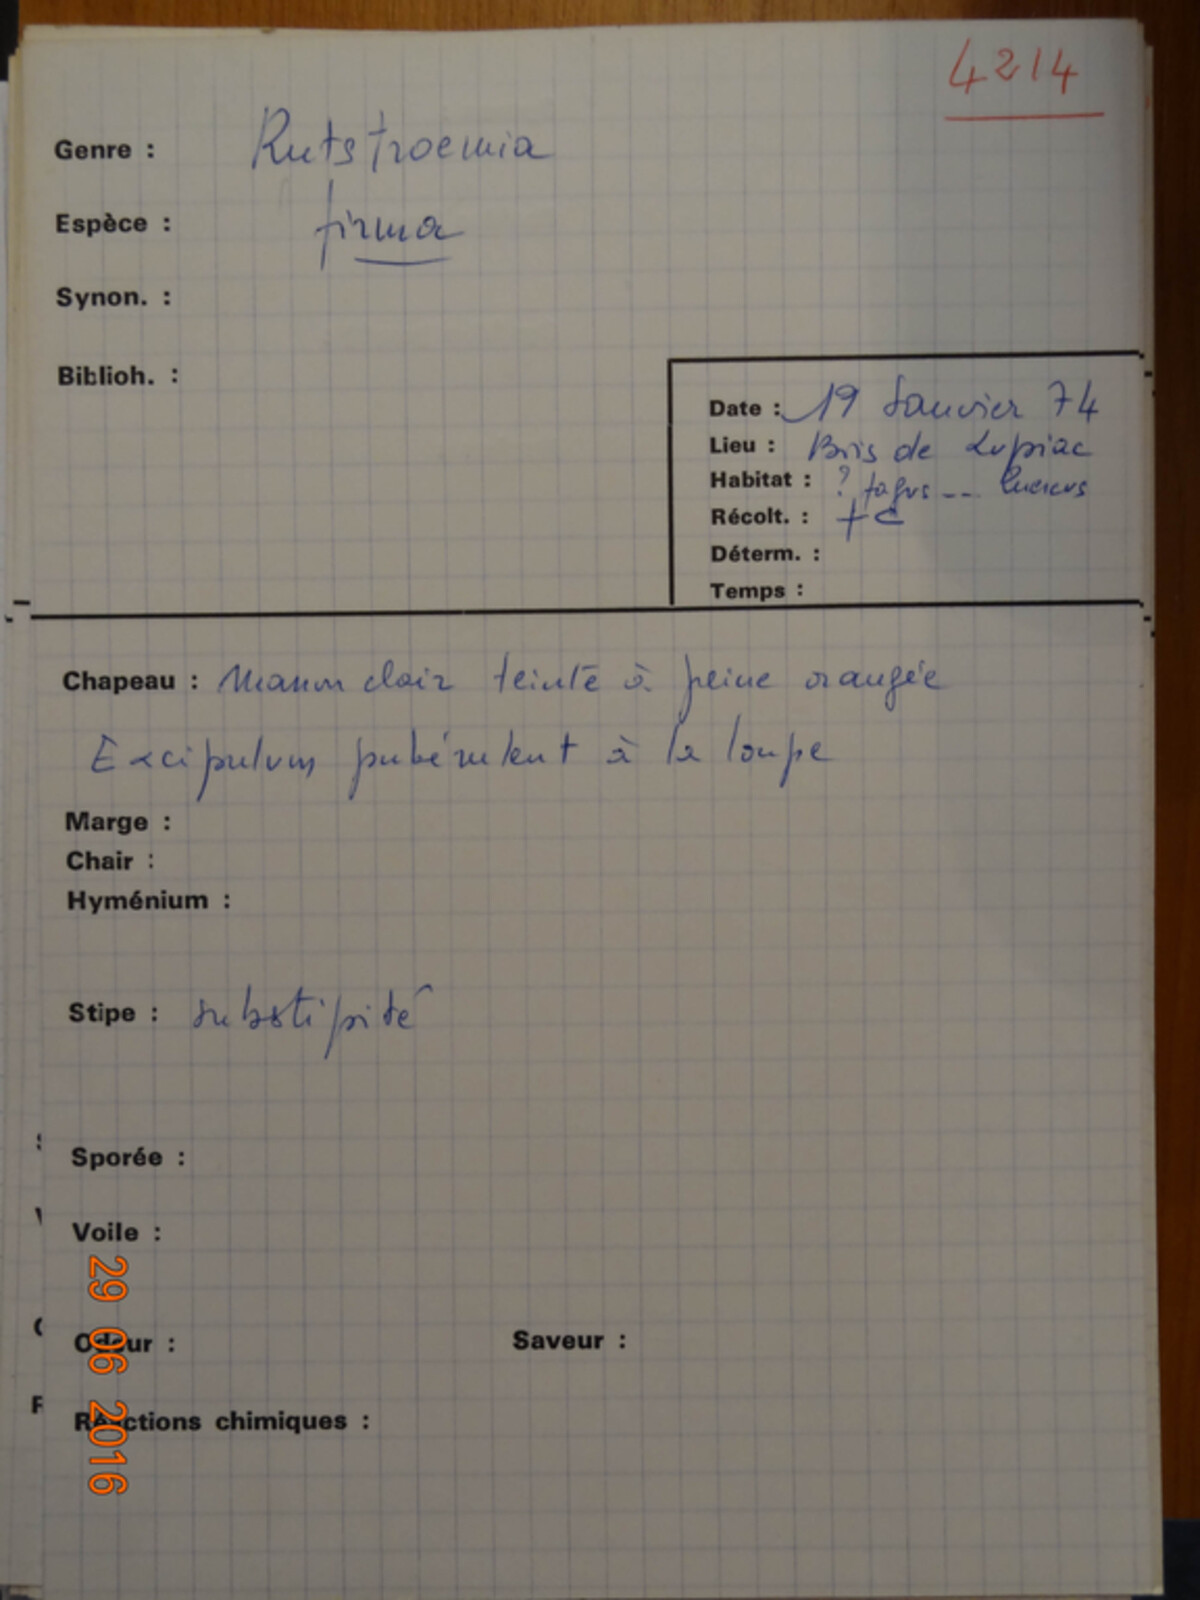 4214
Genre : Rutstroemia
Espèce : firma
Synon. :
Biblioh. :
Date : 19 Janvier 74
Lieu : Bois de Lupiac
Habitat : ? fagus --
Récolt. :
Déterm. :
Temps :
Chapeau : marron clair teinté à peine orangée
Excipulum pubérulent à la loupe
Marge :
Chair :
Hyménium :
Stipe : substipité
Sporée :
Voile :
Odeur : Saveur :
Réactions chimiques :
29 06 2016